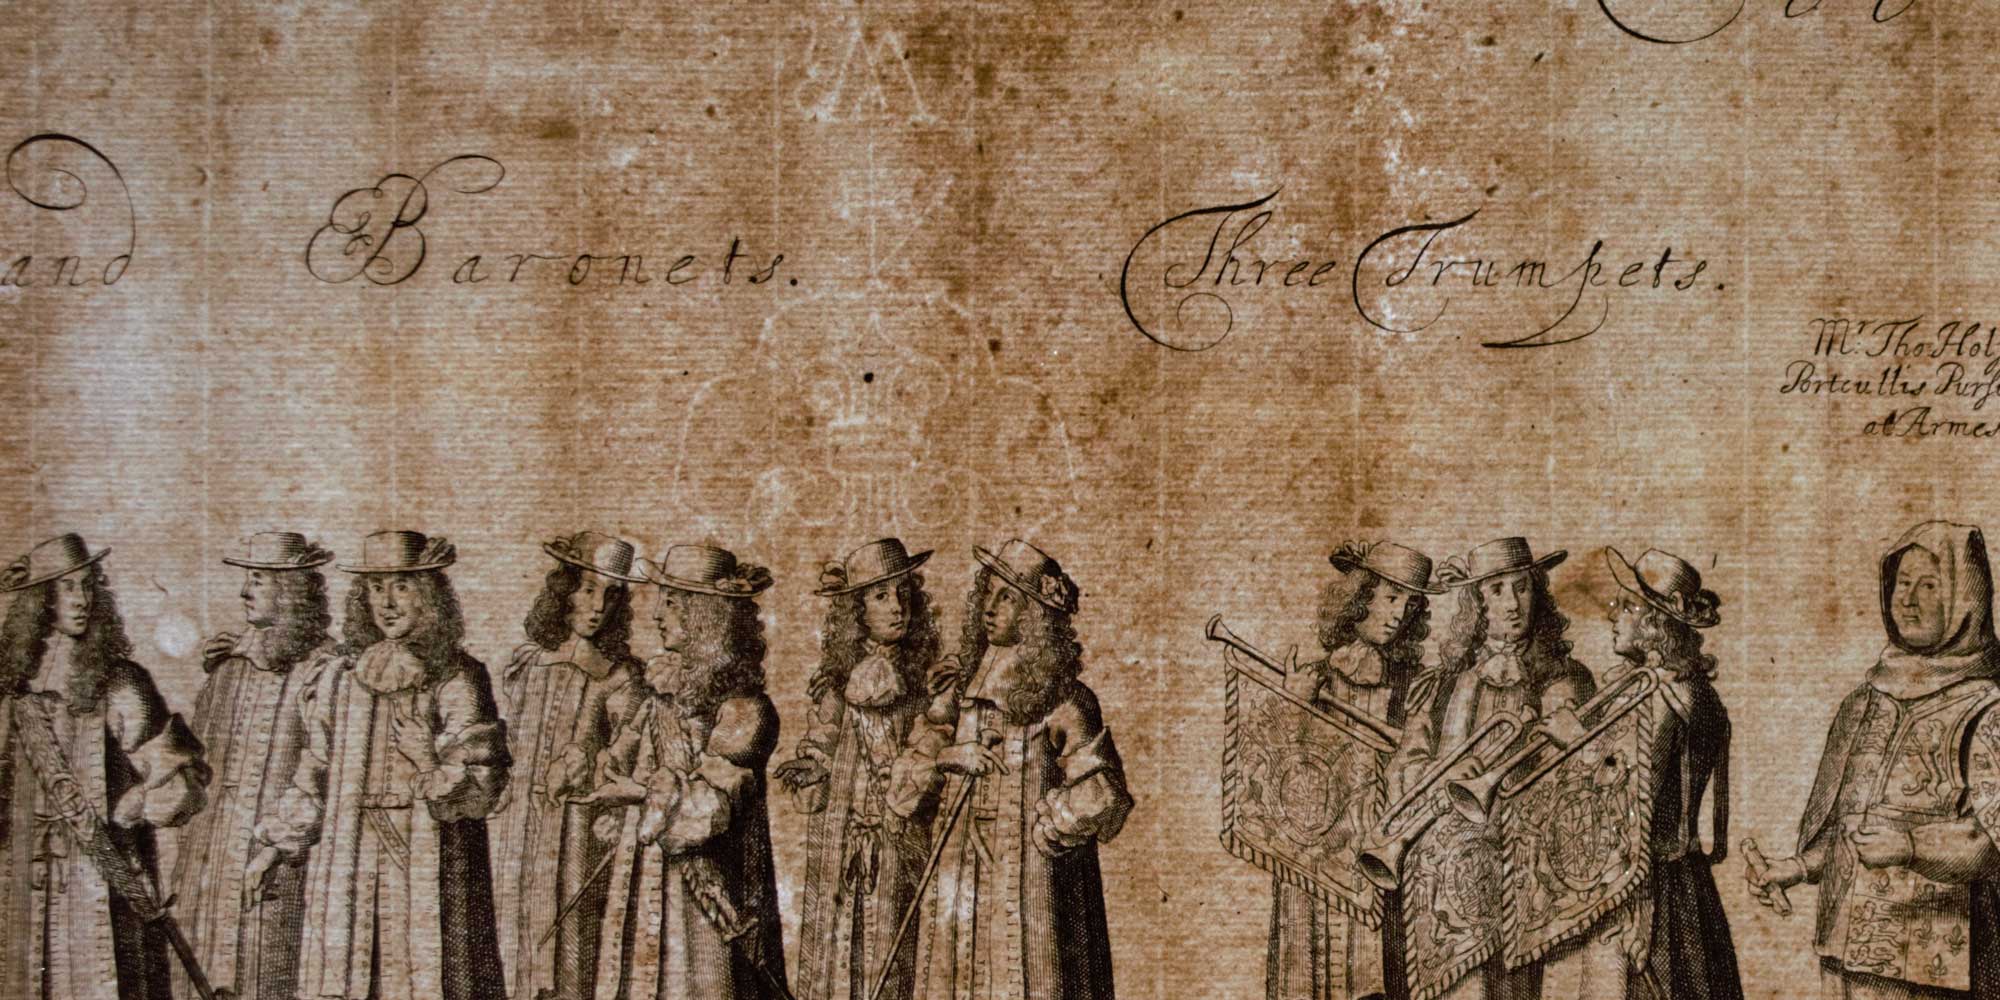 and Baronets.
Three Trumpets.
Mr. Tho. Hol
Portcullis Purs
at Armes